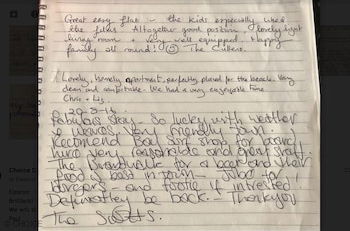 Great easy flat - the kids especially liked
the films. Altogether good position, lovely light
living room & very well equipped. Happy
family all round! The Cullens.
Lovely, homely apartment, perfectly placed for the beach. Very
clean and comfortable. We had a very enjoyable time
Chris + Liz
Fabulous stay - So lucky with weather
& waves, very friendly town.
Recommend surf shop for
hire very reasonable and great staff.
The for a beer and their
food is best in town -
burgers - and footie if interested
Definitely be back. - Thankyou
The Scotts.